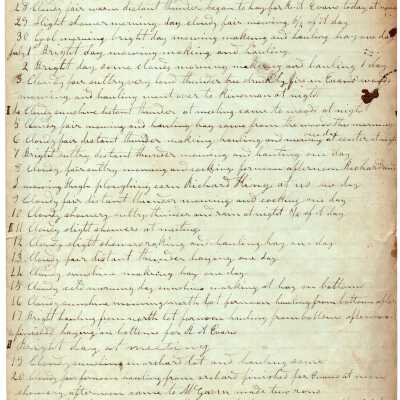 28 Cloudy fair warm distant thunder began to hay for A. A. Evans today at noon
29 Slight shower morning day cloudy fair mowing of it day
30 Cool morning bright day mowing making and hauling hay one day
July 1 Bright day mowing making and hauling
2 Bright day some cloudy morning making and hauling 1 day
3 Cloudy fair sultry very loud thunder tree struck fire in Evans woods
mowing and hauling went over to Kinsman at night
4 Cloudy sunshine distant thunder at meeting came to woods at night
5 Cloudy fair mowing and hauling hay came from the woods this morning
6 Cloudy fair distant thunder making hauling and mowing at center at night
7 Bright sultry distant thunder mowing and hauling one day
8 Cloudy fair sultry mowing and cocking forenoon afternoon Richard and
mowing Hugh ploughing corn Richard Honey at us one day
9 Cloudy fair distant thunder mowing and cocking one day
10 Cloudy showery sultry thunder and rain at night of it day
11 Cloudy slight showers at meeting
12 Cloudy slight showers raking and hauling hay one day
13 Cloudy fair distant thunder haying one day
14 Cloudy sunshine making hay one day
15 Cloudy cold morning day sunshine working at hay in bottoms
16 Cloudy sunshine mowing north lot forenoon hauling from bottoms after
17 Bright hauling from north lot forenoon hauling from bottoms afternoon
finished haying in bottoms for A. A. Evans
Bright day at meeting
19 Cloudy sunshine in orchard lot and hauling some
20 Cloudy fair forenoon hauling from orchard finished for Evans at noon
showery afternoon came to McGaern made two rows